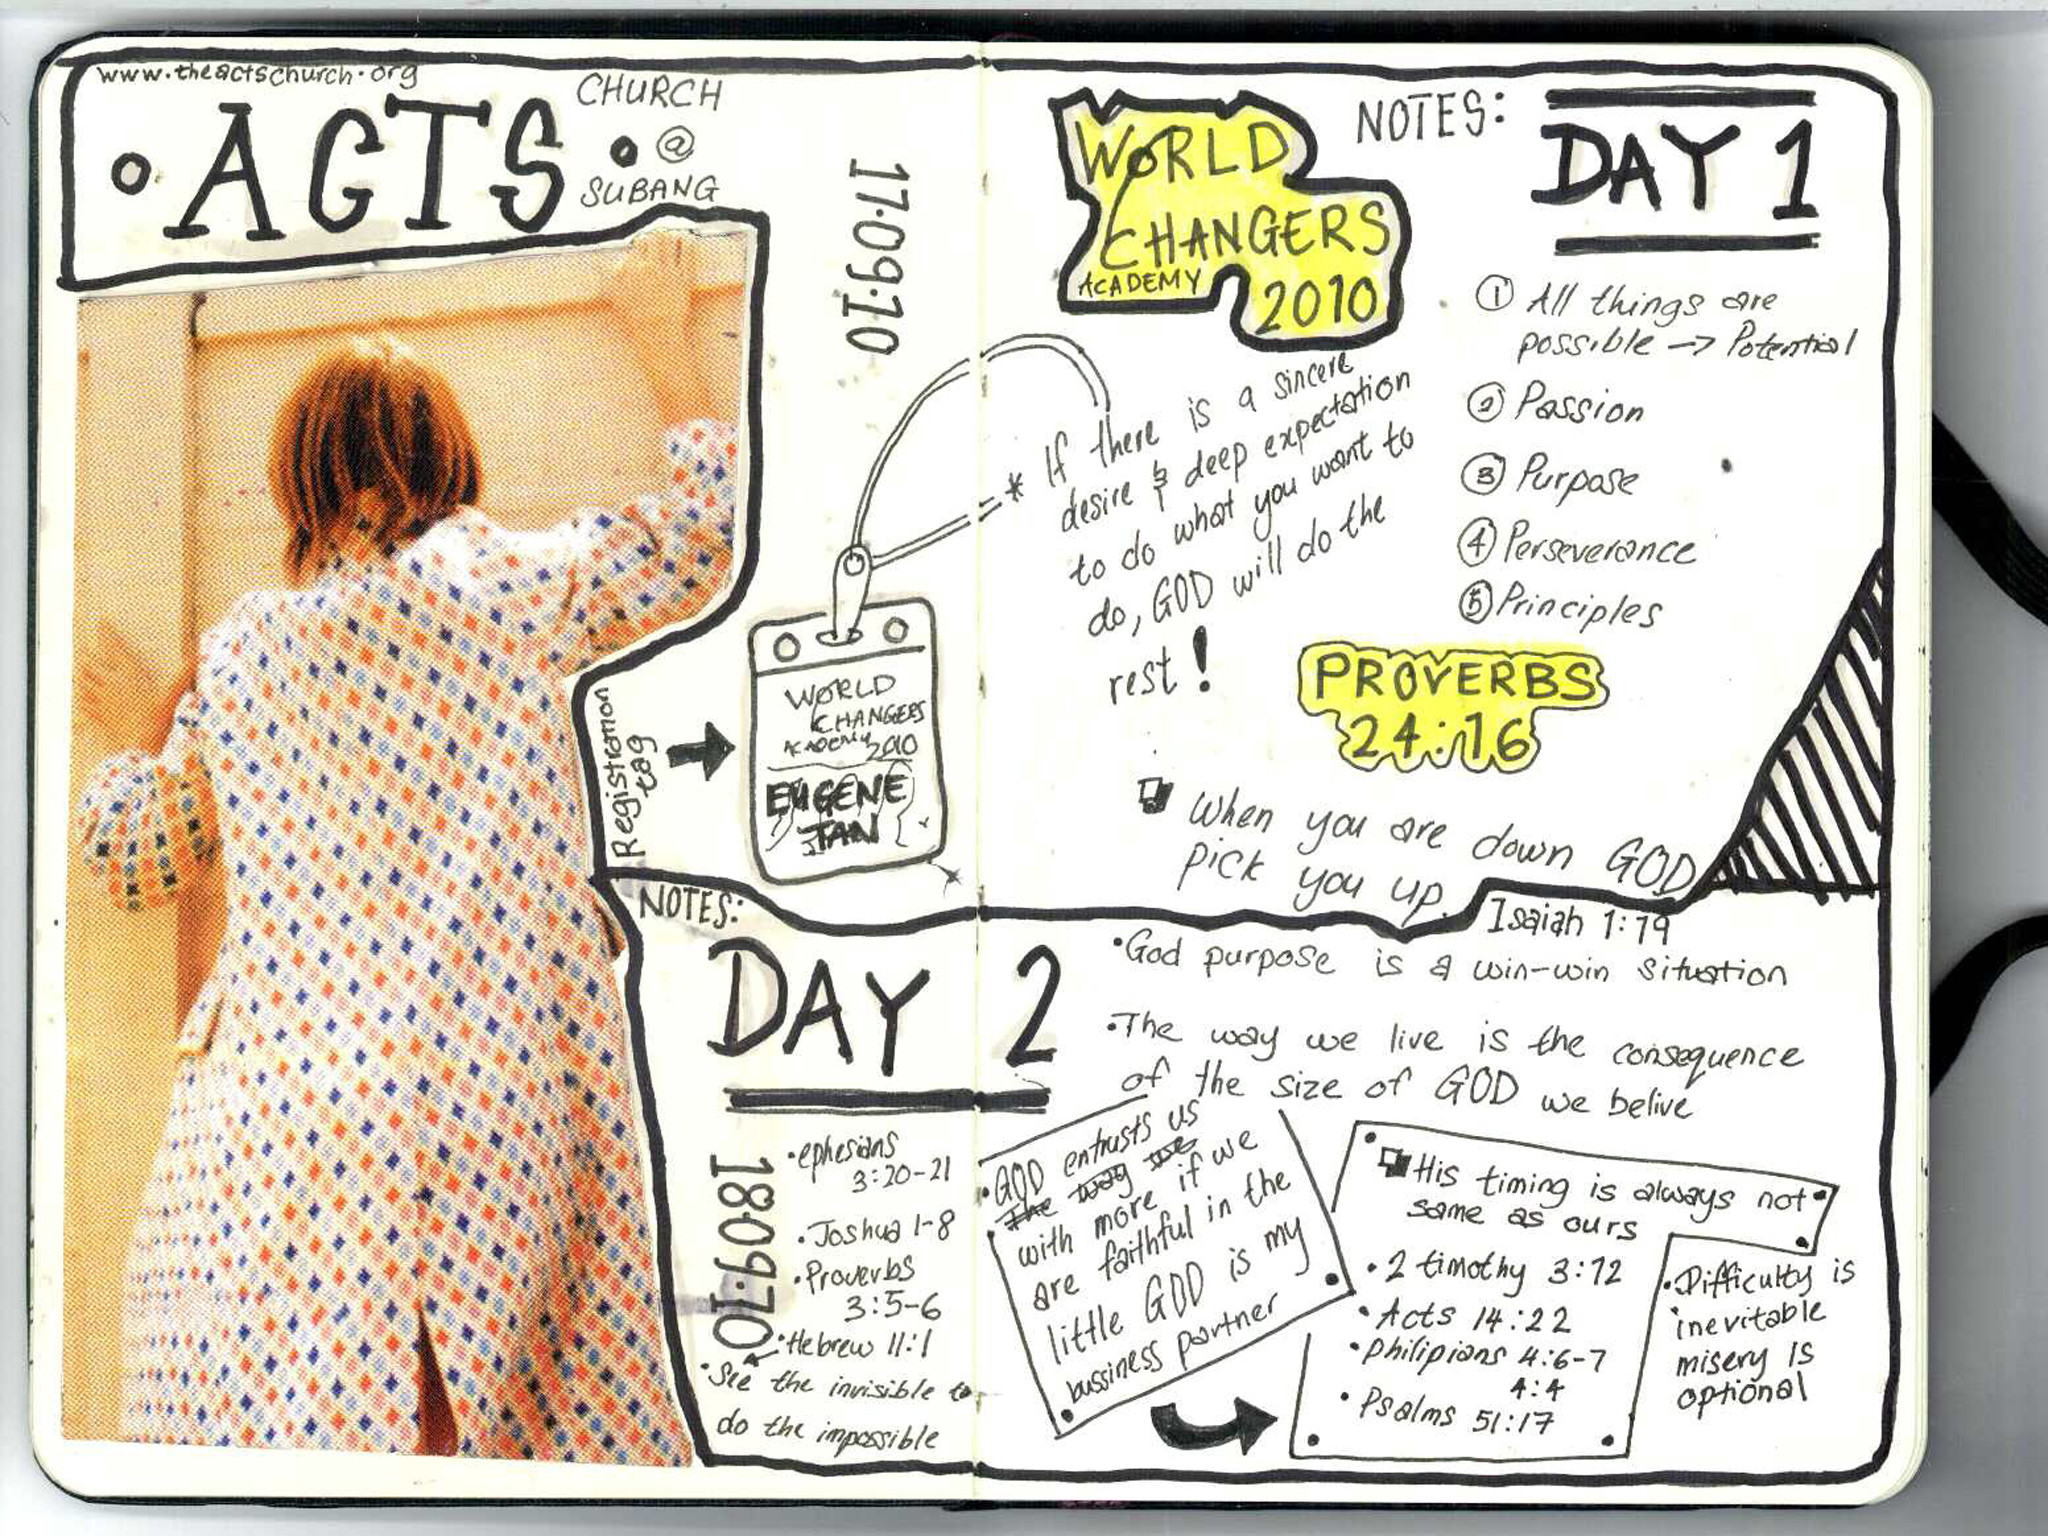 www.theactschurch.org
• ACTS •
CHURCH
@
SUBANG
17·09·10
WORLD
CHANGERS
ACADEMY
2010
NOTES:
DAY 1
① All things are
possible → Potential
② Passion
③ Purpose
④ Perseverance
⑤ Principles
* If there is a sincere
desire & deep expectation
to do what you want to
do, GOD will do the
rest!
PROVERBS
24:16
When you are down GOD
pick you up.
Registration
tag
WORLD
CHANGERS
ACADEMY 2010
EUGENE
TAN
NOTES:
DAY 2
18·09·10
• ephesians
3:20-21
• Joshua 1-8
• Proverbs
3:5-6
• Hebrew 11:1
• See the invisible to
do the impossible
Isaiah 1:19
• God purpose is a win-win situation
• The way we live is the consequence
of the size of GOD we belive
• GOD entrusts us
the way we
with more if we
are faithful in the
little GOD is my
bussiness partner
His timing is always not
same as ours
• 2 timothy 3:12
• Acts 14:22
• Philipians 4:6-7
4:4
• Psalms 51:17
• Difficulty is
inevitable
misery is
optional